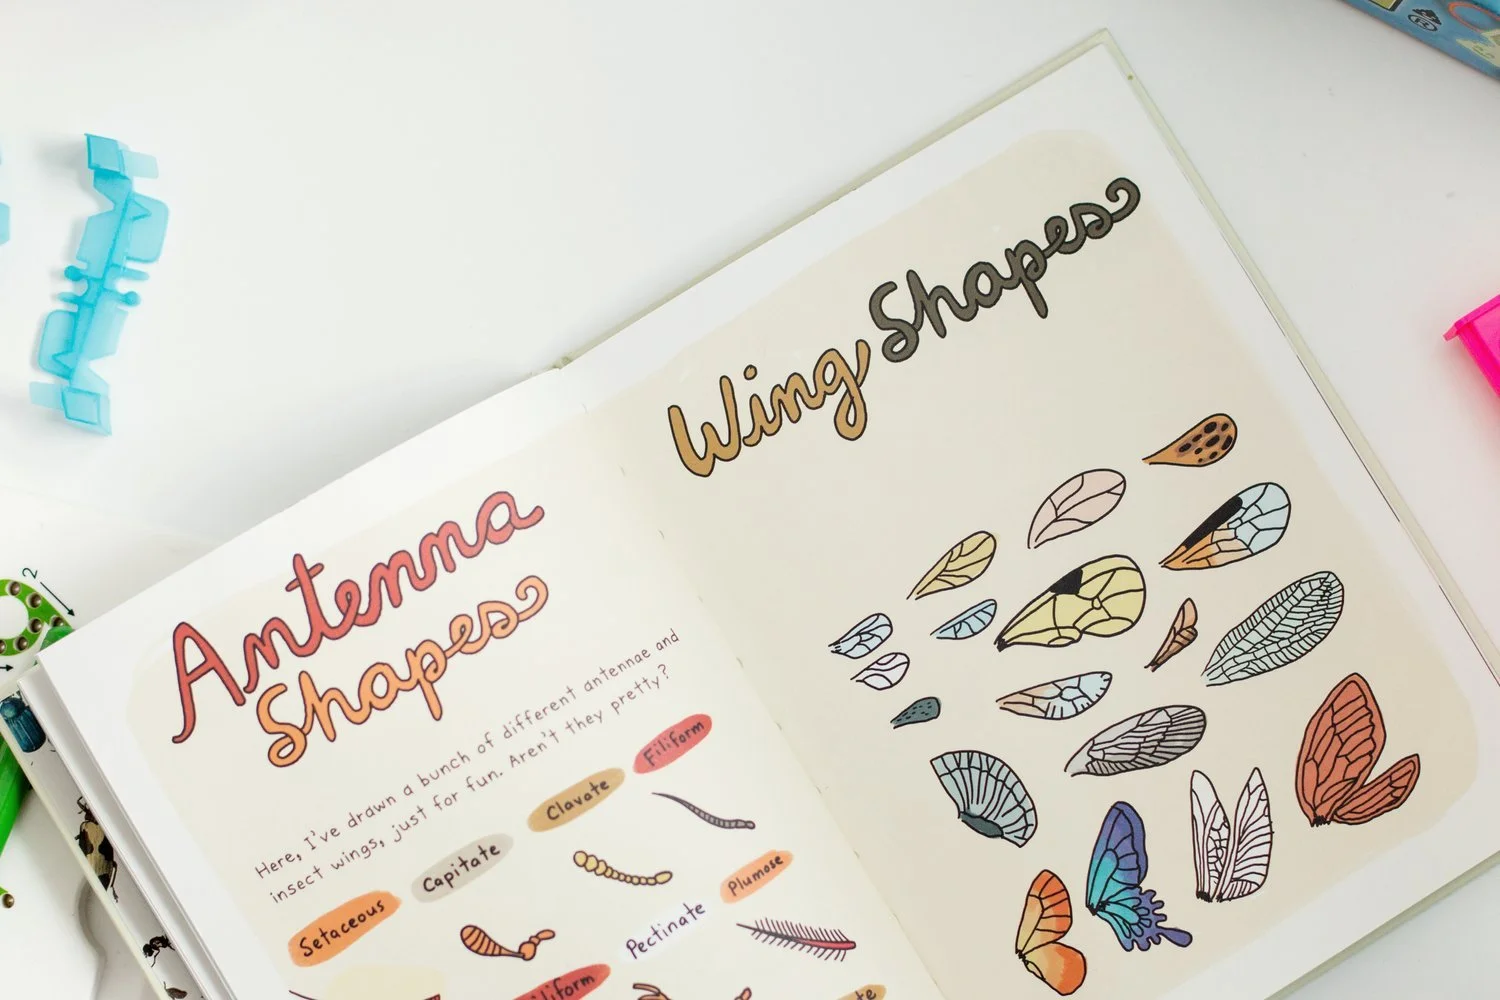 Antenna
Shapes
Here, I've drawn a bunch of different antennae and
insect wings, just for fun. Aren't they pretty?
Setaceous
Capitate
Clavate
Filiform
Pectinate
Plumose
Wing Shapes
2